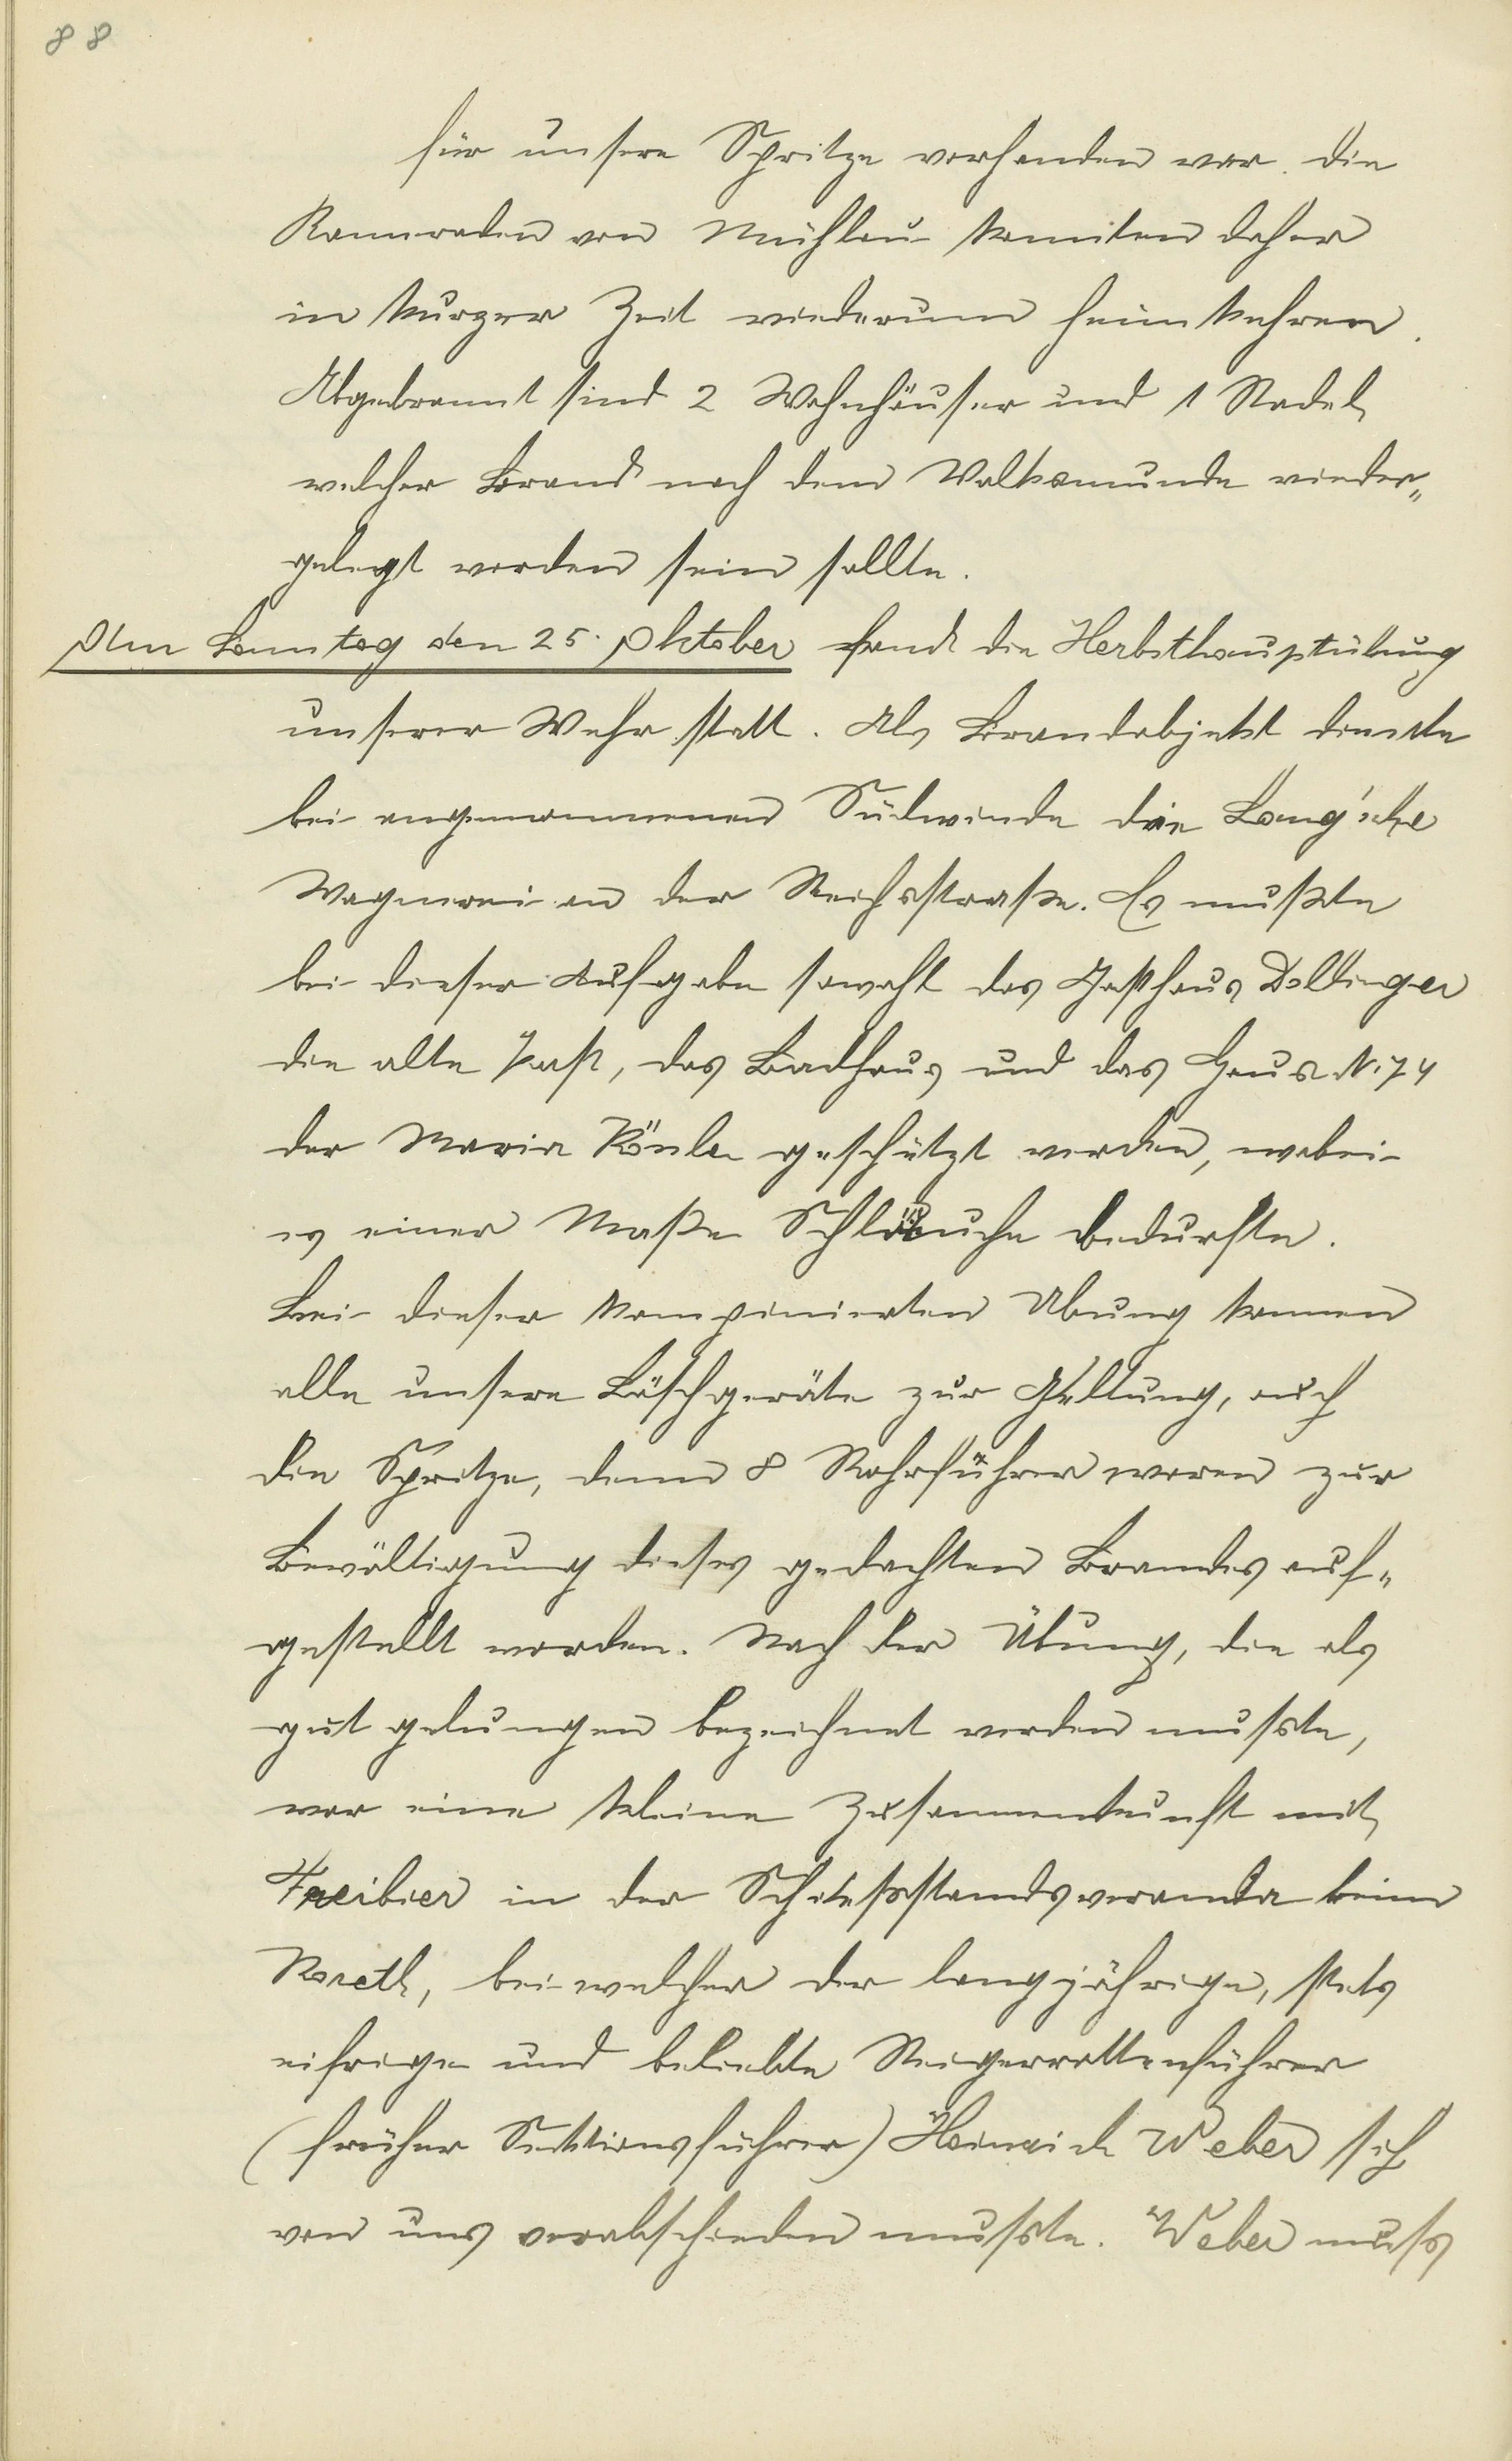 88
für unsere Spritze vorhanden war. Die
Kameraden von Mühlau konnten daher
in kurzer Zeit wiederum heimkehren.
Abgebrannt sind 2 Wohnhäuser und 1 Stadel,
welcher Brand nach dem Volksmunde nieder„
gelegt worden sein sollte.
Am Sonntag den 25. Oktober fand die Herbsthauptübung
unserer Wehr statt. Als Brandobjekt diente
bei angenommenen Südwinde die Lang'sche
Wagnerei an der Reichsstraße. Es mußte
bei dieser Aufgabe sowohl das Gasthaus Dollinger
die alte Post, das Badhaus und das Haus N. 74
der Maria geschützt werden, wobei
es einer Maße Schläuche bedurfte.
Bei dieser kompinierten Übung kamen
alle unsere Löschgeräte zur Geltung, auch
die Spritze, denn 8 Rohrführer waren zur
Bewältigung dieses gedachten Brandes auf„
gestellt worden. Nach der Übung, die als
gut gelungen bezeichnet werden musste,
war eine kleine Zusammenkunft mit
Freibier in der Schiessstandsveranda beim
Koreth, bei welcher der langjährige, stets
eifrige und beliebte Steigerrottenführer
(früher Sektionsführer) Heinrich Weber sich
von uns verabschieden musste. Weber muss